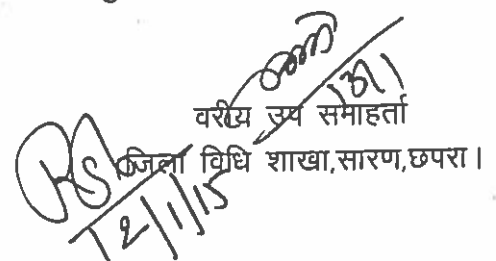 वरीय उप समाहर्ता
जिला विधि शाखा,सारण,छपरा।
12/1/15